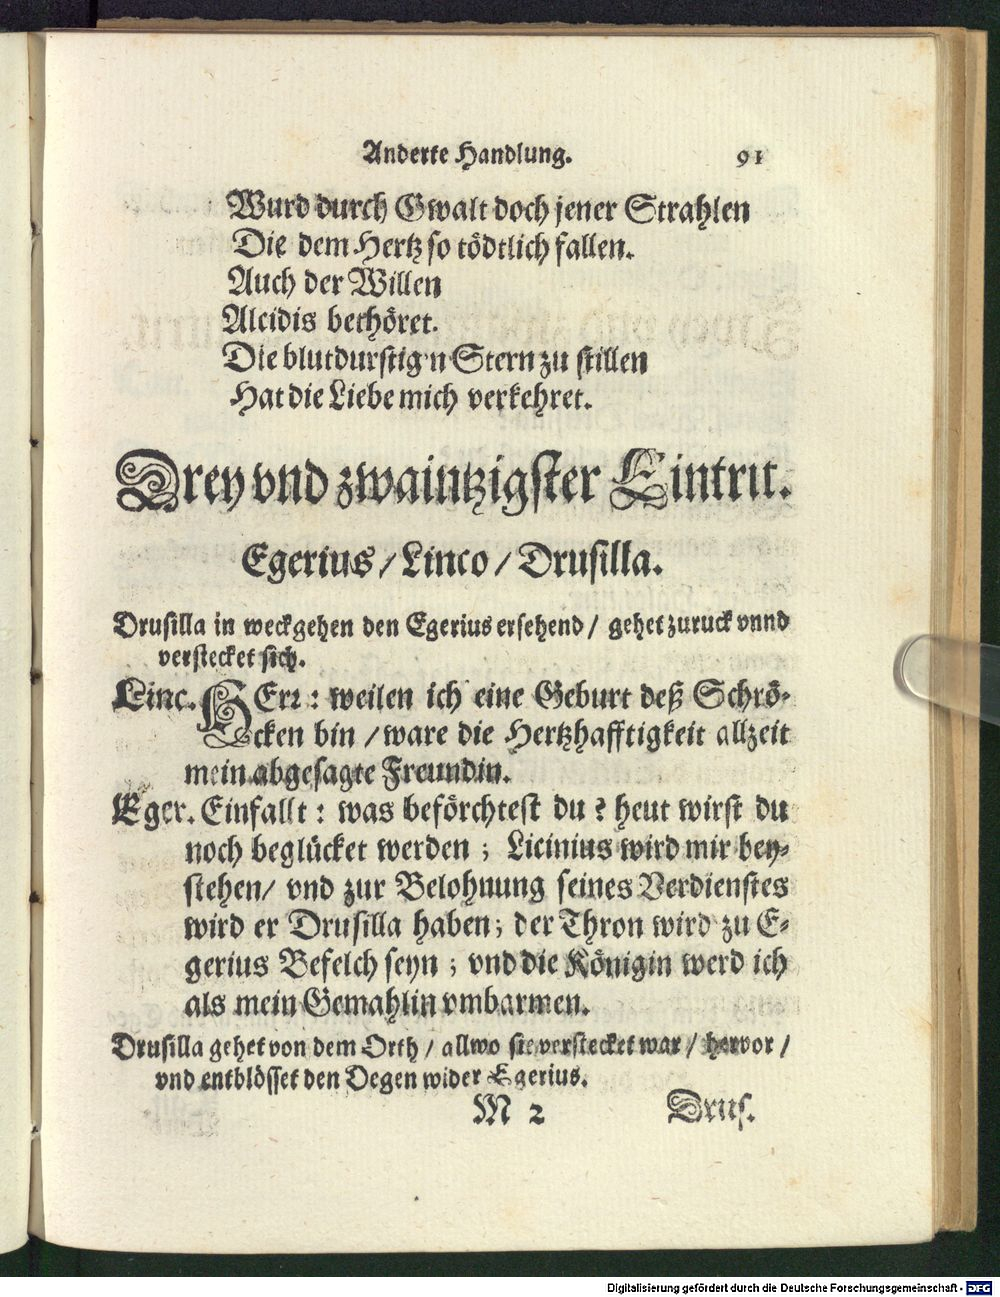 Anderte Handlung. 91
Wurd durch Gwalt doch jener Strahlen
Die dem Hertz so tödtlich fallen.
Auch der Willen
Alcidis bethöret.
Die blutdurstig'n Stern zu stillen
Hat die Liebe mich verkehret.
Drey vnd zwaintzigster Eintrit.
Egerius / Linco / Drusilla.
Drusilla in weckgehen den Egerius ersehend / gehet zuruck vnnd
verstecket sich.
Linc. HErr : weilen ich eine Geburt deß Schrö-
cken bin / ware die Hertzhafftigkeit allzeit
mein abgesagte Freundin.
Eger. Einfallt : was beförchtest du ? heut wirst du
noch beglücket werden ; Licinius wird mir bey-
stehen / vnd zur Belohnung seines Verdienstes
wird er Drusilla haben ; der Thron wird zu E-
gerius Befelch seyn ; vnd die Königin werd ich
als mein Gemahlin vmbarmen.
Drusilla gehet von dem Orth / allwo sie verstecket war / hervor /
vnd entblösset den Degen wider Egerius.
M 2 Drus.
Digitalisierung gefördert durch die Deutsche Forschungsgemeinschaft - DFG